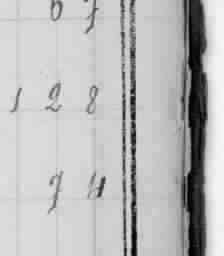 67
128
74